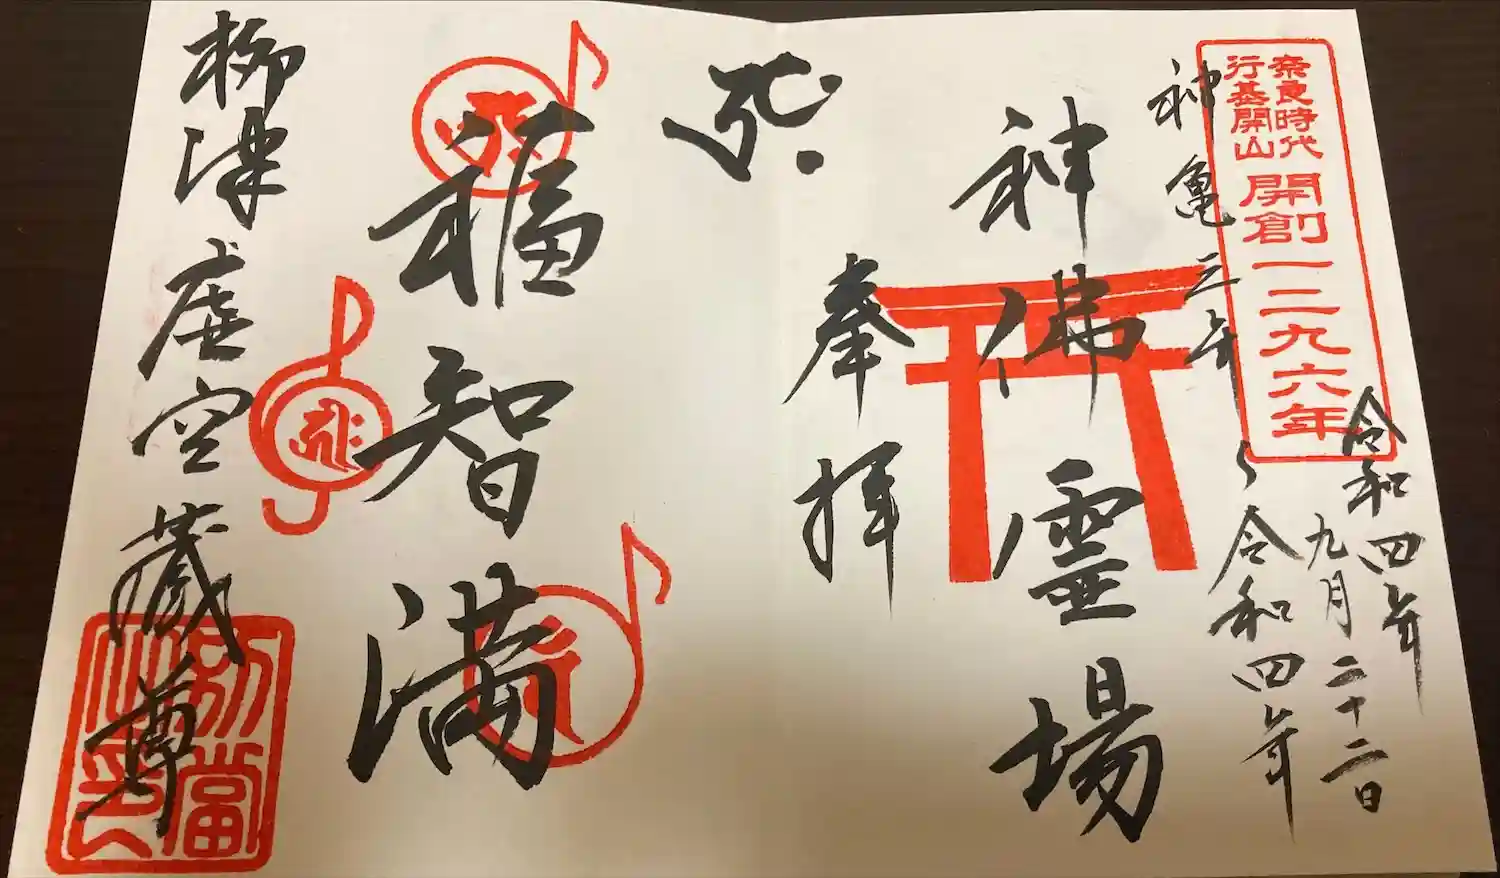 奈良時代
行基開山
開創一二九六年
令和四年
九月二十二日
神亀三年〜令和四年
神佛霊場
奉拝
福智満
柳津虚空蔵尊
別當